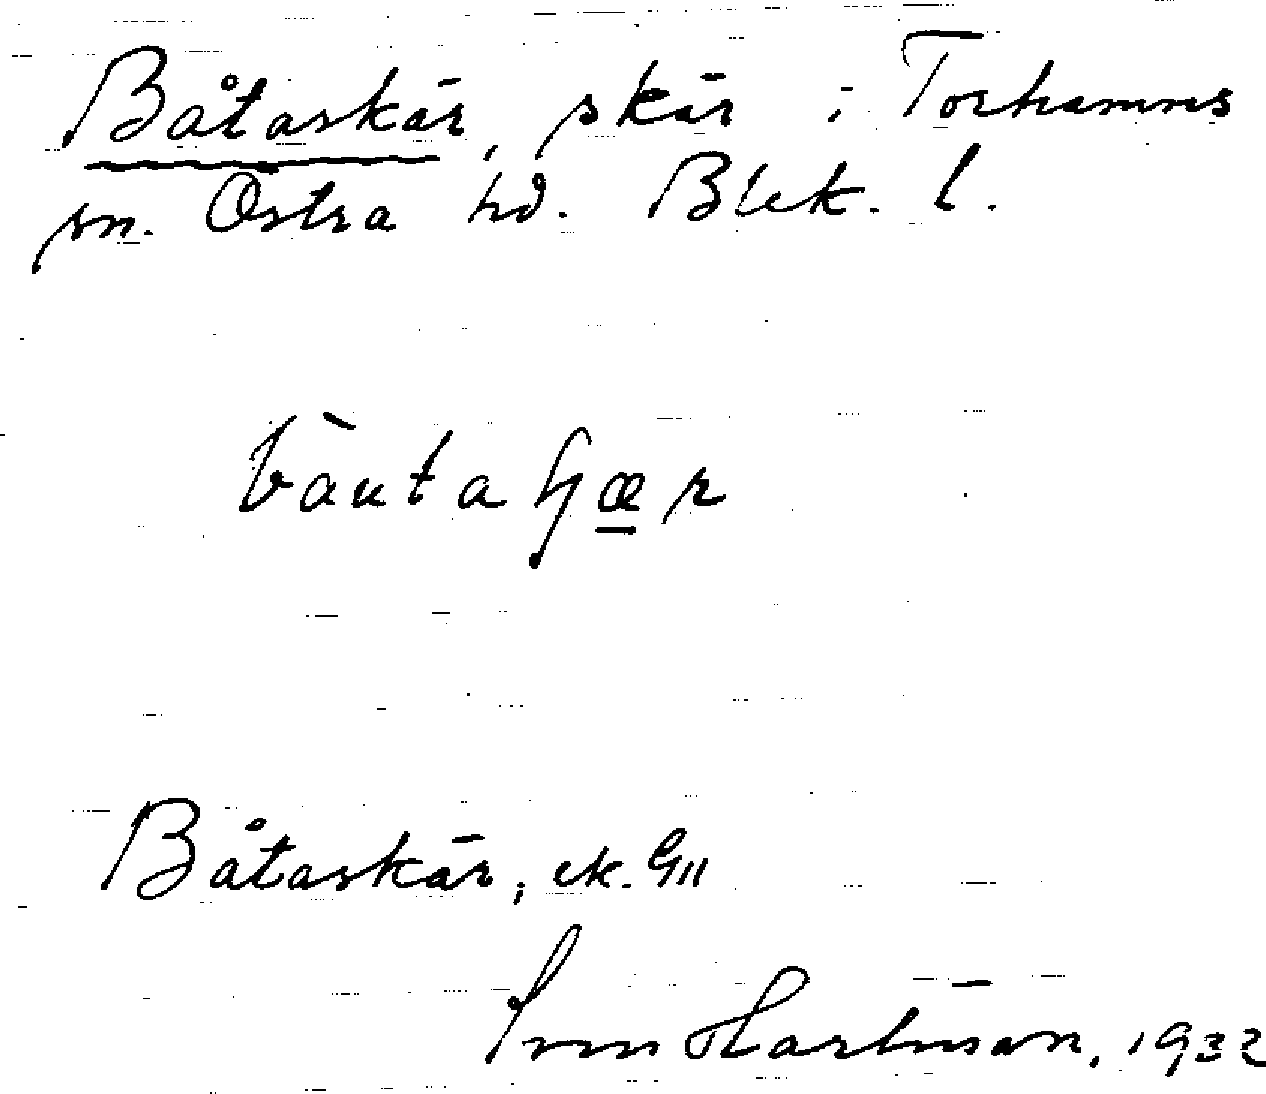 Båtaskär, skär i Torhamns
sn. Östra hd. Blek. l.
Båtaskär, ek. G11
Sven Hartman, 1932